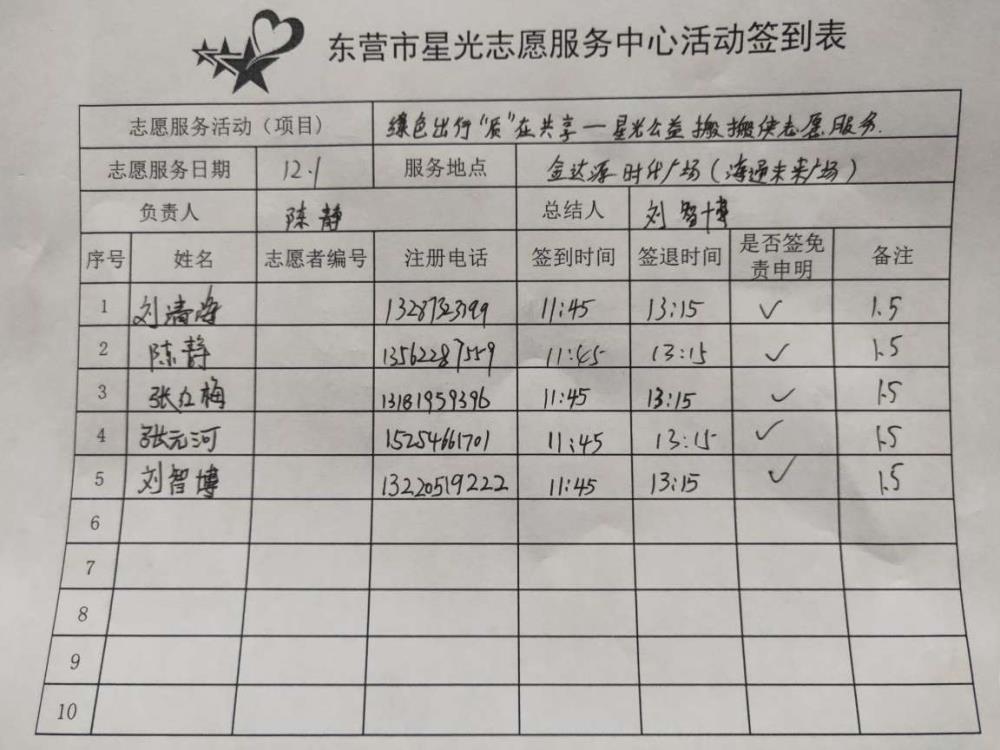 东营市星光志愿服务中心活动签到表
志愿服务活动（项目） 绿色出行“质”在共享—星光公益搬搬侠志愿服务.
志愿服务日期 12.1 服务地点 金达源时代广场(海通未来广场)
负责人 陈静 总结人 刘智博
序号 姓名 志愿者编号 注册电话 签到时间 签退时间 是否签免责申明 备注
1 刘清海 13287323199 11:45 13:15 ✓ 1.5
2 陈静 13562287559 11:45 13:15 ✓ 1.5
3 张红梅 13181959396 11:45 13:15 ✓ 1.5
4 张元河 15254661701 11:45 13:15 ✓ 1.5
5 刘智博 13220519222 11:45 13:15 ✓ 1.5
6
7
8
9
10